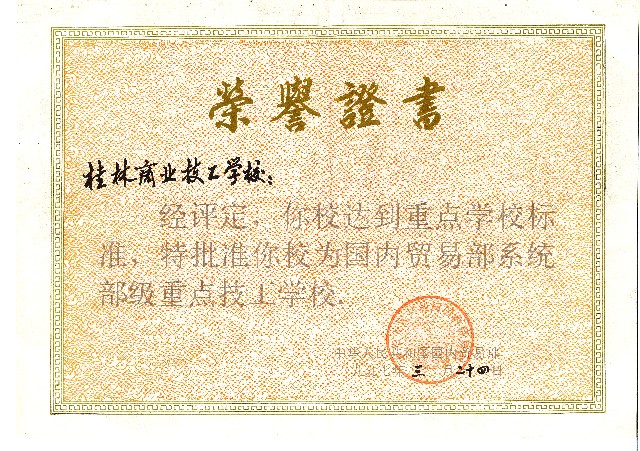 榮譽證書
桂林商业技工学校：
经评定，你校达到重点学校标
准，特批准你校为国内贸易部系统
部级重点技工学校.
中华人民共和国国内贸易部
一九九七年三月二十四日